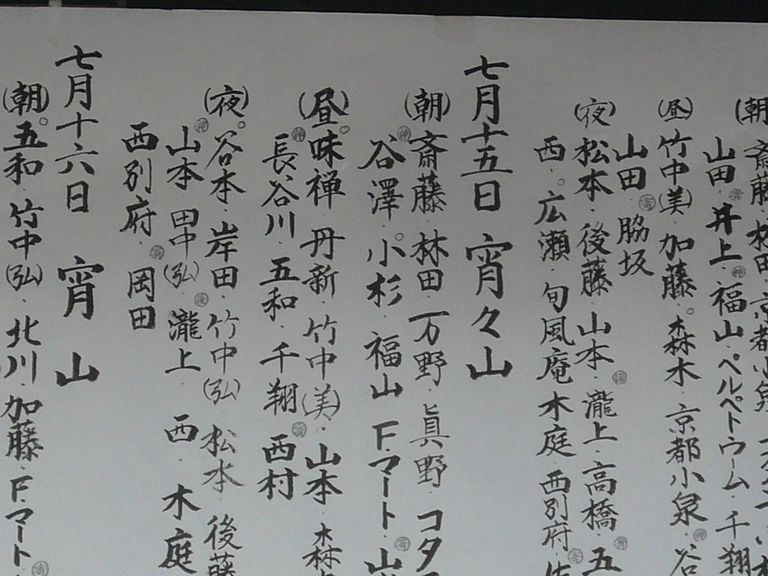 (朝)斎藤・林田・京都小泉
山田・井上・福山・ペルペトウーム・千翔
(昼)竹中(美)加藤・森木・京都小泉・谷
山田・脇坂
(夜)松本・後藤・山本・瀧上・高橋・五
西・広瀬・旬風庵・木庭・西別府・佐
七月十五日 宵々山
(朝)斎藤・林田・万野・眞野・コタ
谷澤・小杉・福山・F.マート・山
(昼)味禅・丹新・竹中(美)・山本・森
長谷川・五和・千翔・西村
(夜)谷本・岸田・竹中(弘)・松本・後藤
山本・田中(弘)・瀧上・西・木庭
西別府・岡田
七月十六日 宵山
(朝)五和・竹中(弘)・北川・加藤・F.マート